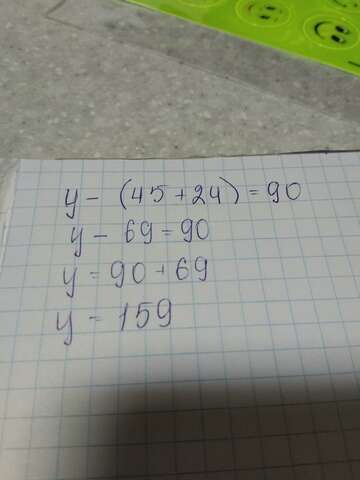 y - (45 + 24) = 90
y - 69 = 90
y = 90 + 69
y = 159